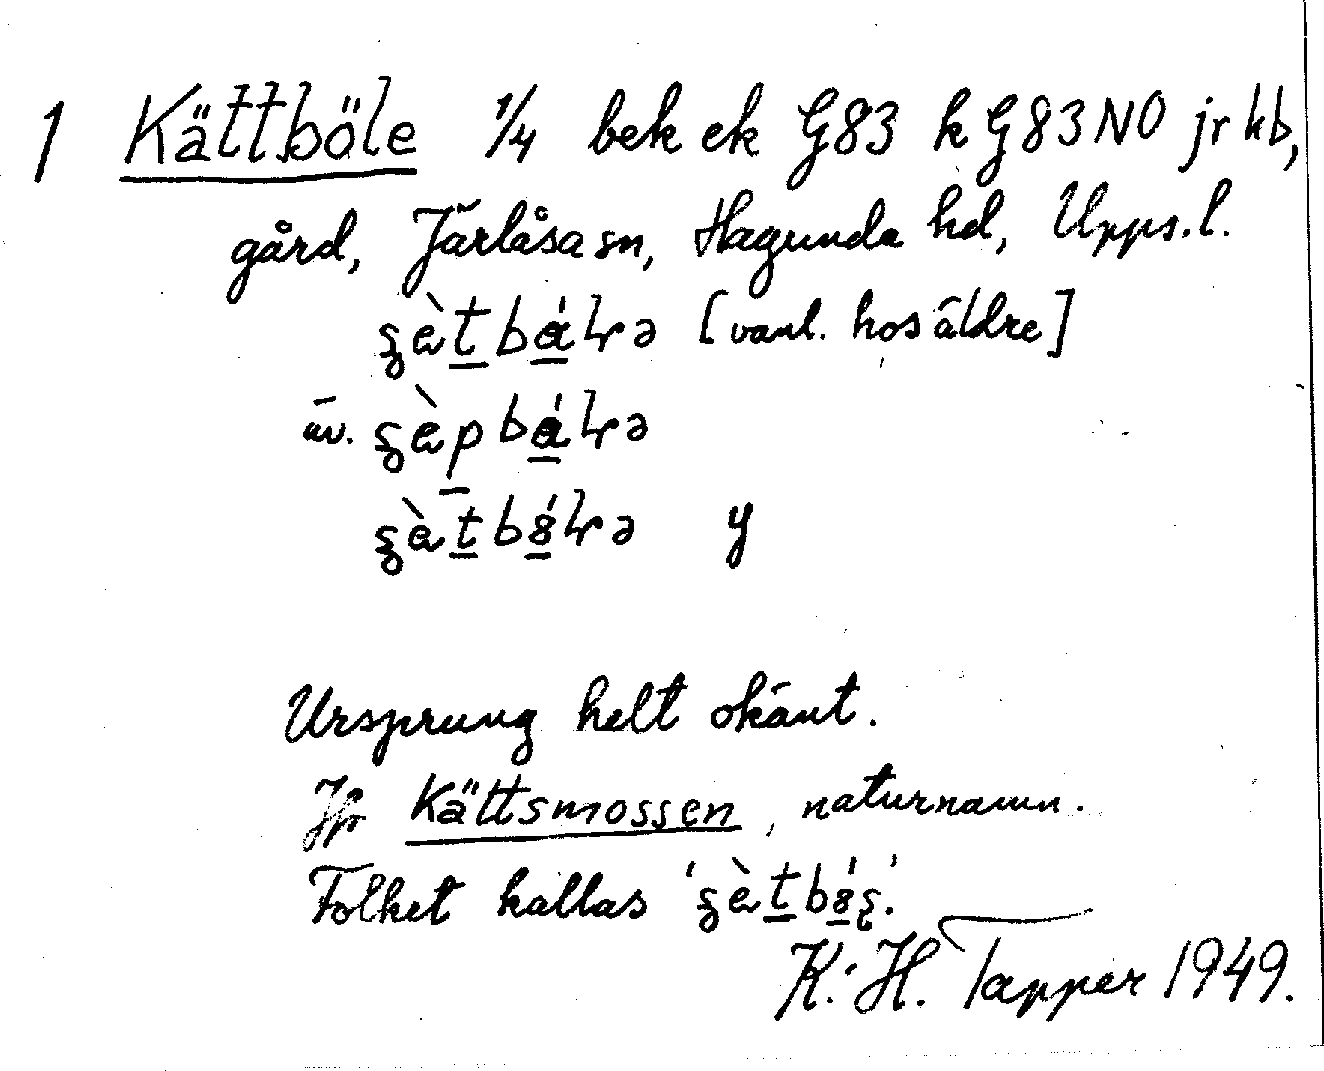 1 Kättböle 1/4 bek ek G83 k G83NO jr kb,
gård, Järlåsa sn, Hagunda hd, Upps.l.
[vanl. hos äldre]
äv.
y
Ursprung helt okänt.
Jfr Kättsmossen, naturnamn.
Folket kallas
K.-H. Tapper 1949.